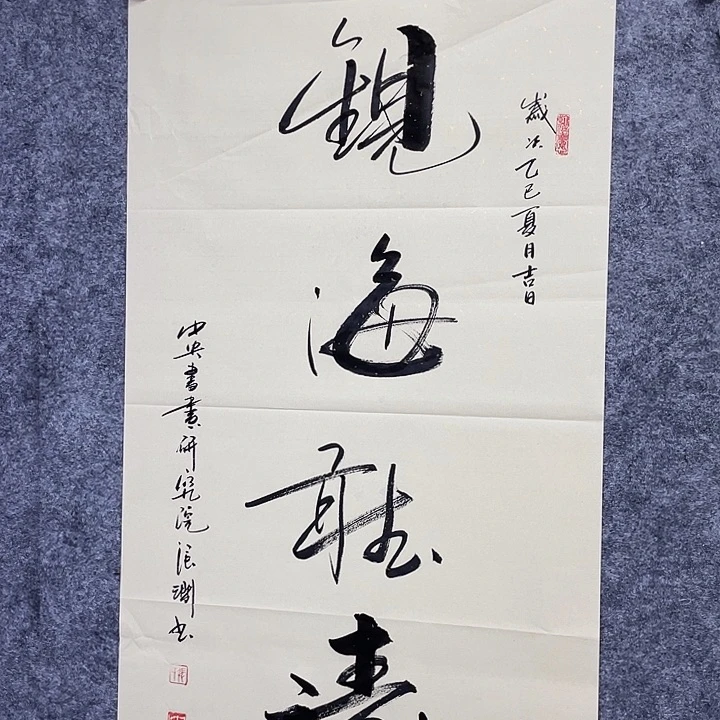 歲次乙巳夏月吉日
觀海聽濤
中央書畫研究院淵书